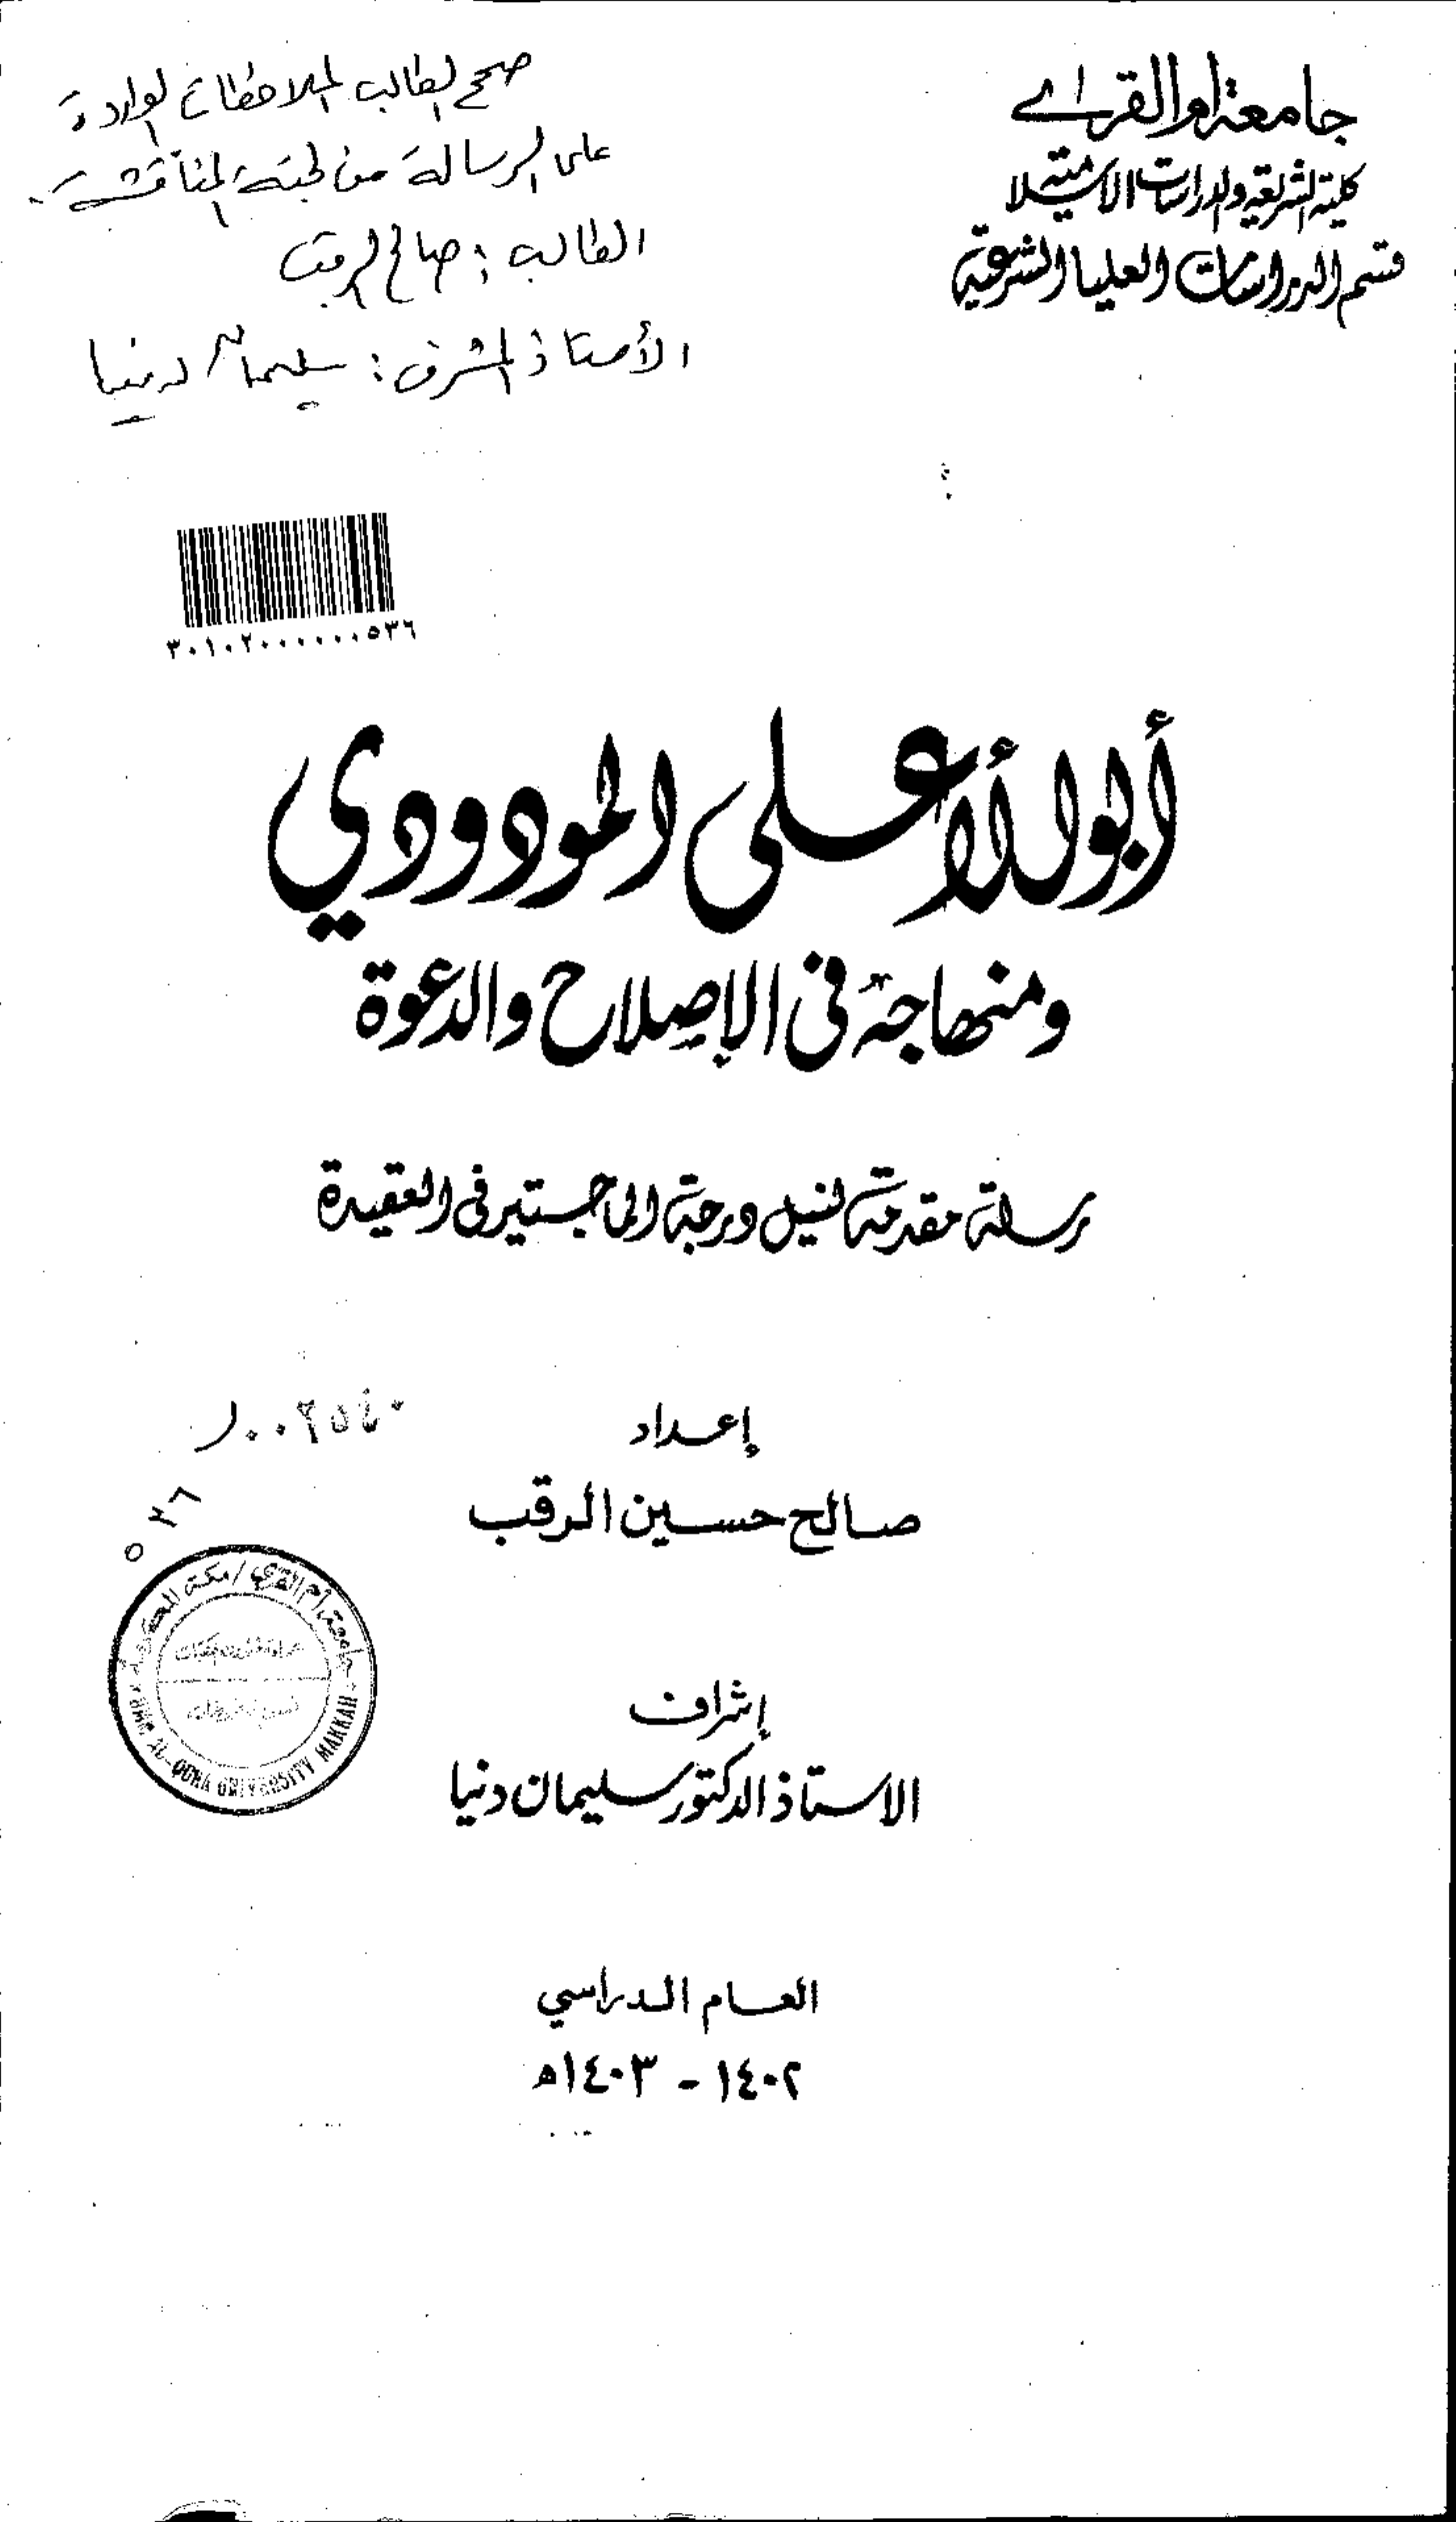 جامعة أم القرى
كلية الشريعة والدراسات الاسلامية
قسم الدراسات العليا الشرعية
صحح الطالب الملاحظات الواردة
على الرسالة من لجنة المناقشة.
الطالب : صالح الرقب
الأستاذ المشرف : سليمان دنيا
٣٠١٠٢٠٠٠٠٠٠٥٣٦
أبو الأعلى المودودي
ومنهاجه في الإصلاح والدعوة
رسالة مقدمة لنيل درجة الماجستير في العقيدة
إعداد
صالح حسين الرقب
٥٣٦
جامعة أم القرى / مكة المكرمة
UMM AL-QURA UNIVERSITY MAKKAH
إشراف
الاستاذ الدكتور سليمان دنيا
العام الدراسي
١٤٠٢ - ١٤٠٣ه